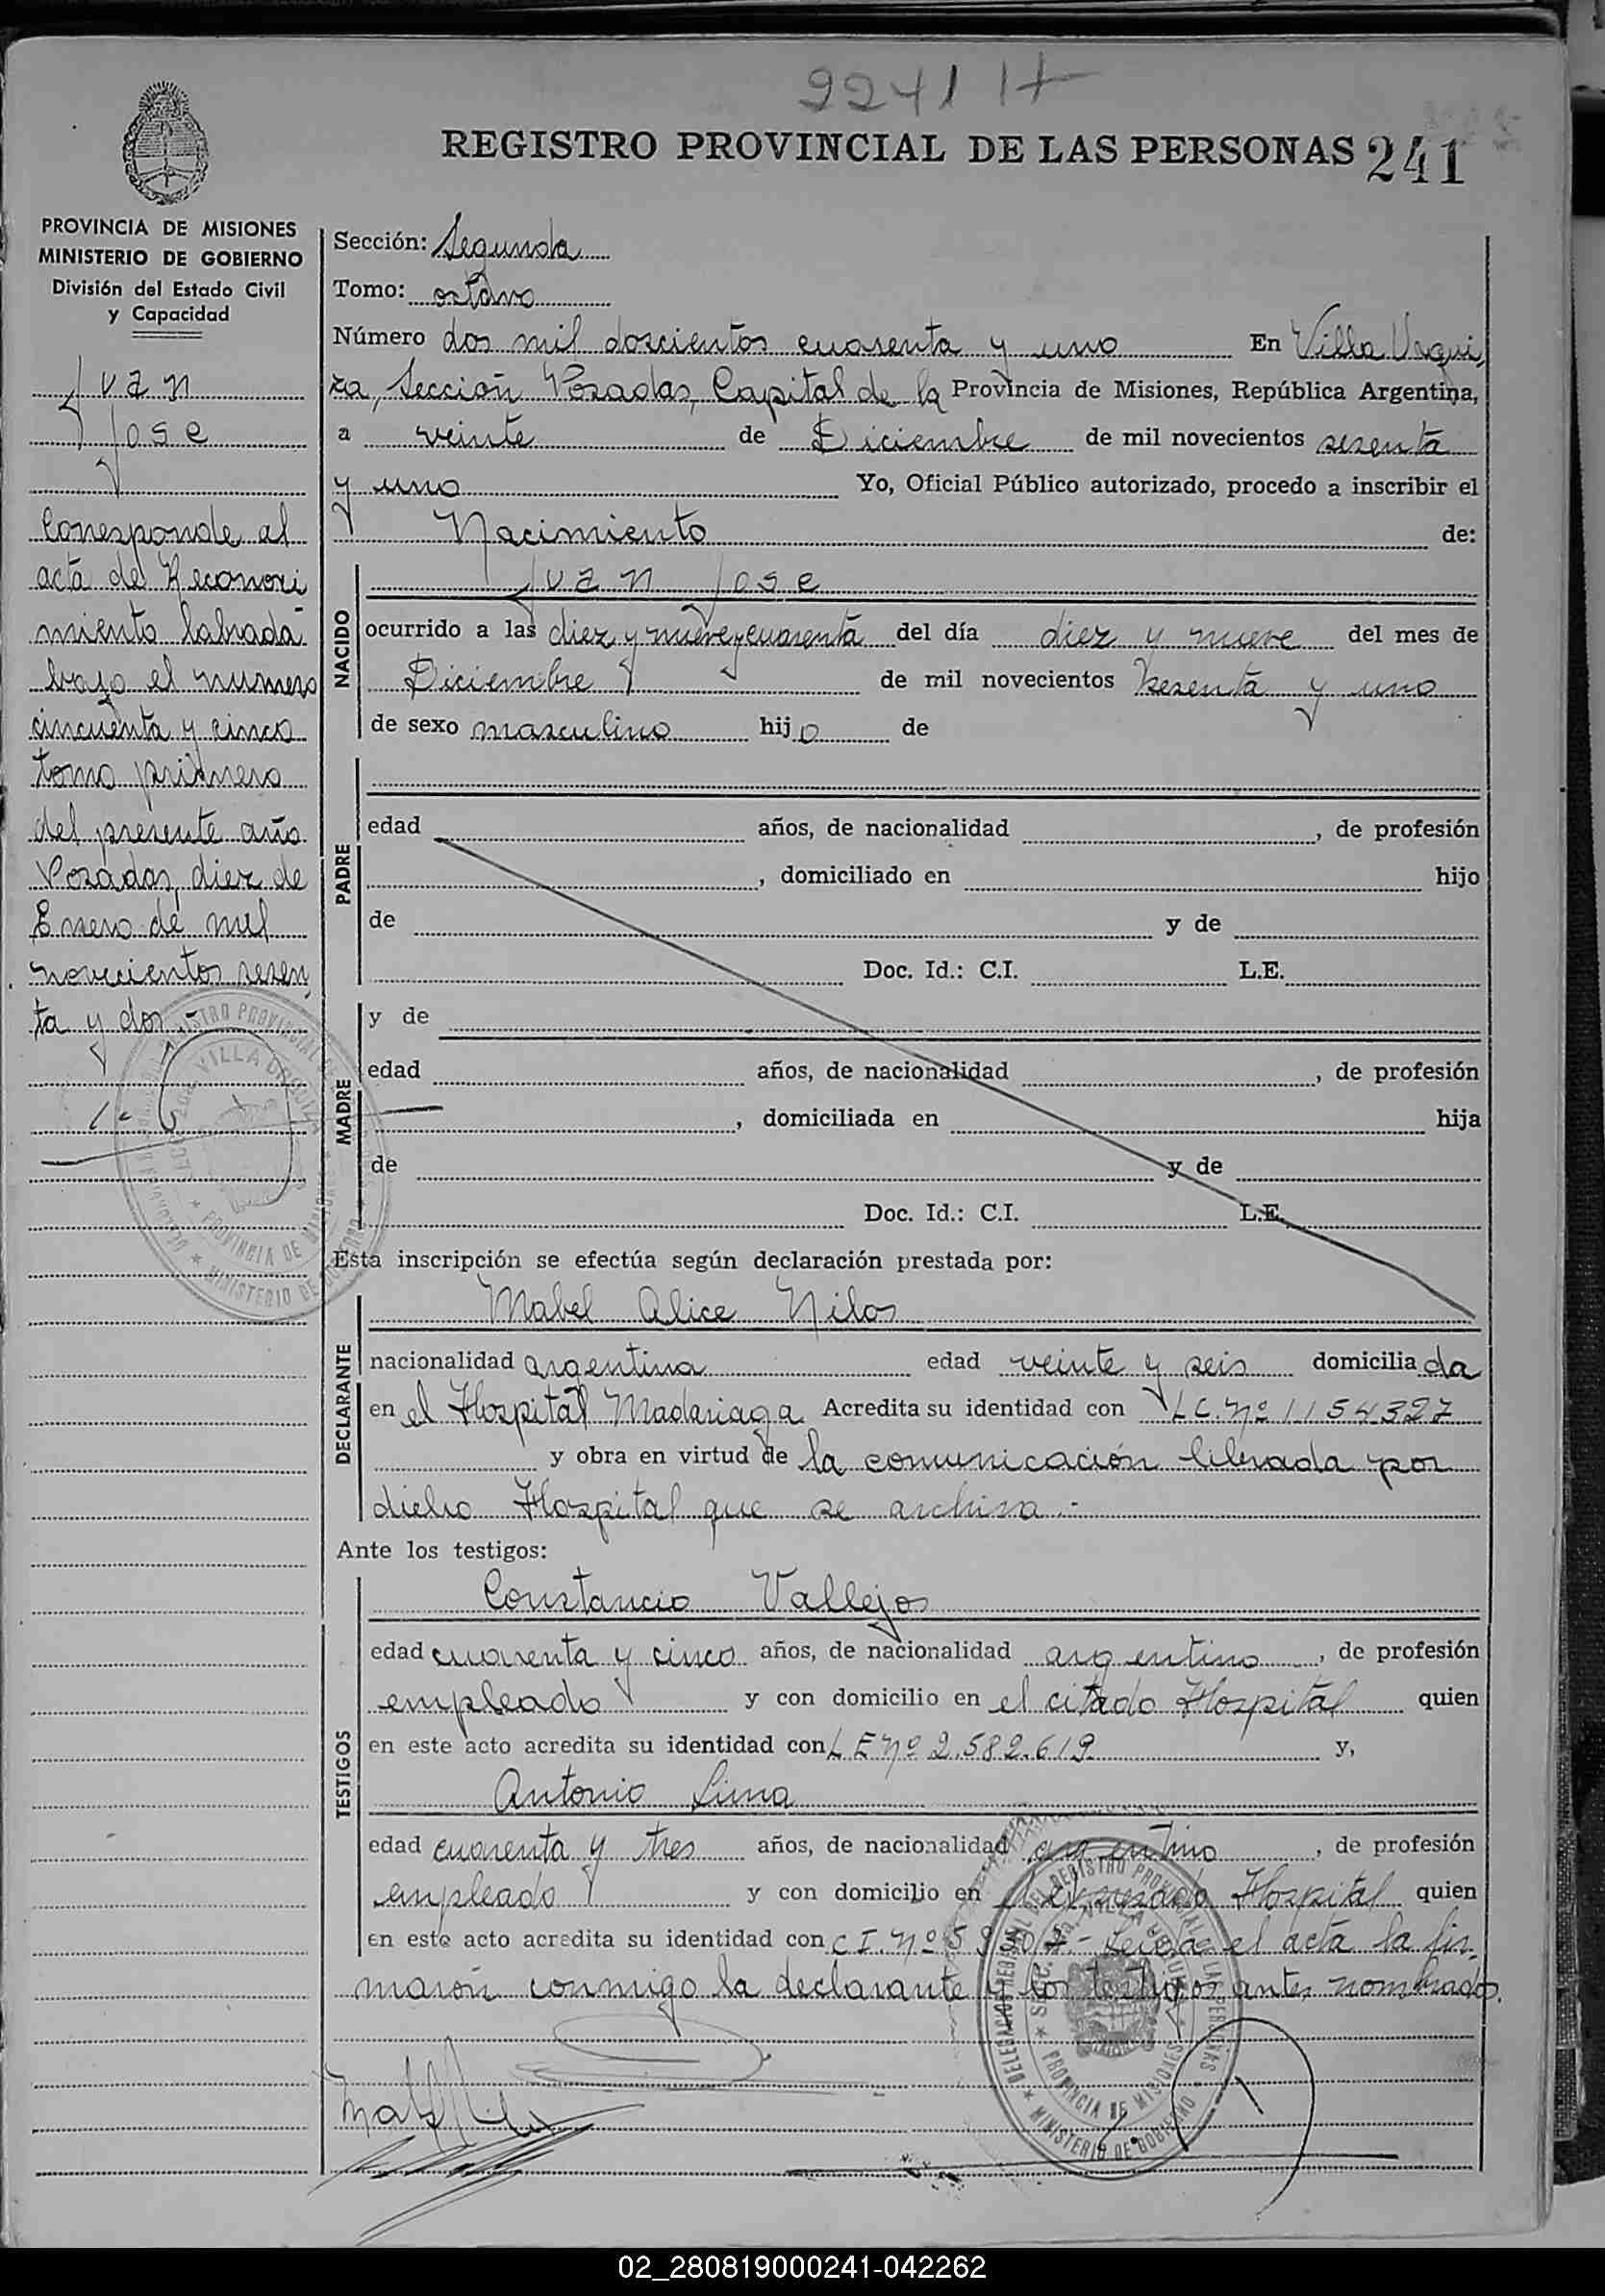 2241 H
REGISTRO PROVINCIAL DE LAS PERSONAS 241
PROVINCIA DE MISIONES
MINISTERIO DE GOBIERNO
División del Estado Civil
y Capacidad
Juan
Jose
Corresponde al
acta de Reconoci
miento labrada
bajo el numero
cincuenta y cinco
tomo primero
del presente año
Posadas, diez de
Enero de mil
novecientos sesen
ta y dos.-
Sección: Segunda
Tomo: octavo
Número dos mil doscientos cuarenta y uno En Villa Urqui
za, Sección Posadas, Capital de la Provincia de Misiones, República Argentina,
a veinte de Diciembre de mil novecientos sesenta
y uno Yo, Oficial Público autorizado, procedo a inscribir el
Nacimiento de:
NACIDO
Juan Jose
ocurrido a las diez y nueve y cuarenta del día diez y nueve del mes de
Diciembre de mil novecientos sesenta y uno
de sexo masculino hijo de
PADRE
edad años, de nacionalidad , de profesión
, domiciliado en hijo
de y de
Doc. Id.: C.I. L.E.
MADRE
y de
edad años, de nacionalidad , de profesión
, domiciliada en hija
de y de
Doc. Id.: C.I. L.E.
Esta inscripción se efectúa según declaración prestada por:
DECLARANTE
Mabel Alice Nilos
nacionalidad argentina edad veinte y seis domiciliada
en el Hospital Madariaga Acredita su identidad con LC. Nº 1154327
y obra en virtud de la comunicación librada por
dicho Hospital que se archiva.-
Ante los testigos:
TESTIGOS
Constancio Vallejos
edad cuarenta y cinco años, de nacionalidad argentino, de profesión
empleado y con domicilio en el citado Hospital quien
en este acto acredita su identidad con L E Nº 2.582.619 y,
Antonio Lima
edad cuarenta y tres años, de nacionalidad argentino, de profesión
empleado y con domicilio en el expresado Hospital quien
en este acto acredita su identidad con C I. Nº Leida el acta la fir
maron conmigo la declarante y los testigos antes nombrados.
DELEGACION REGIONAL DEL REGISTRO PROVINCIAL DE LAS PERSONAS
SECC. 2da. VILLA URQUIZA
PROVINCIA DE MISIONES
MINISTERIO DE GOBIERNO
02_280819000241-042262